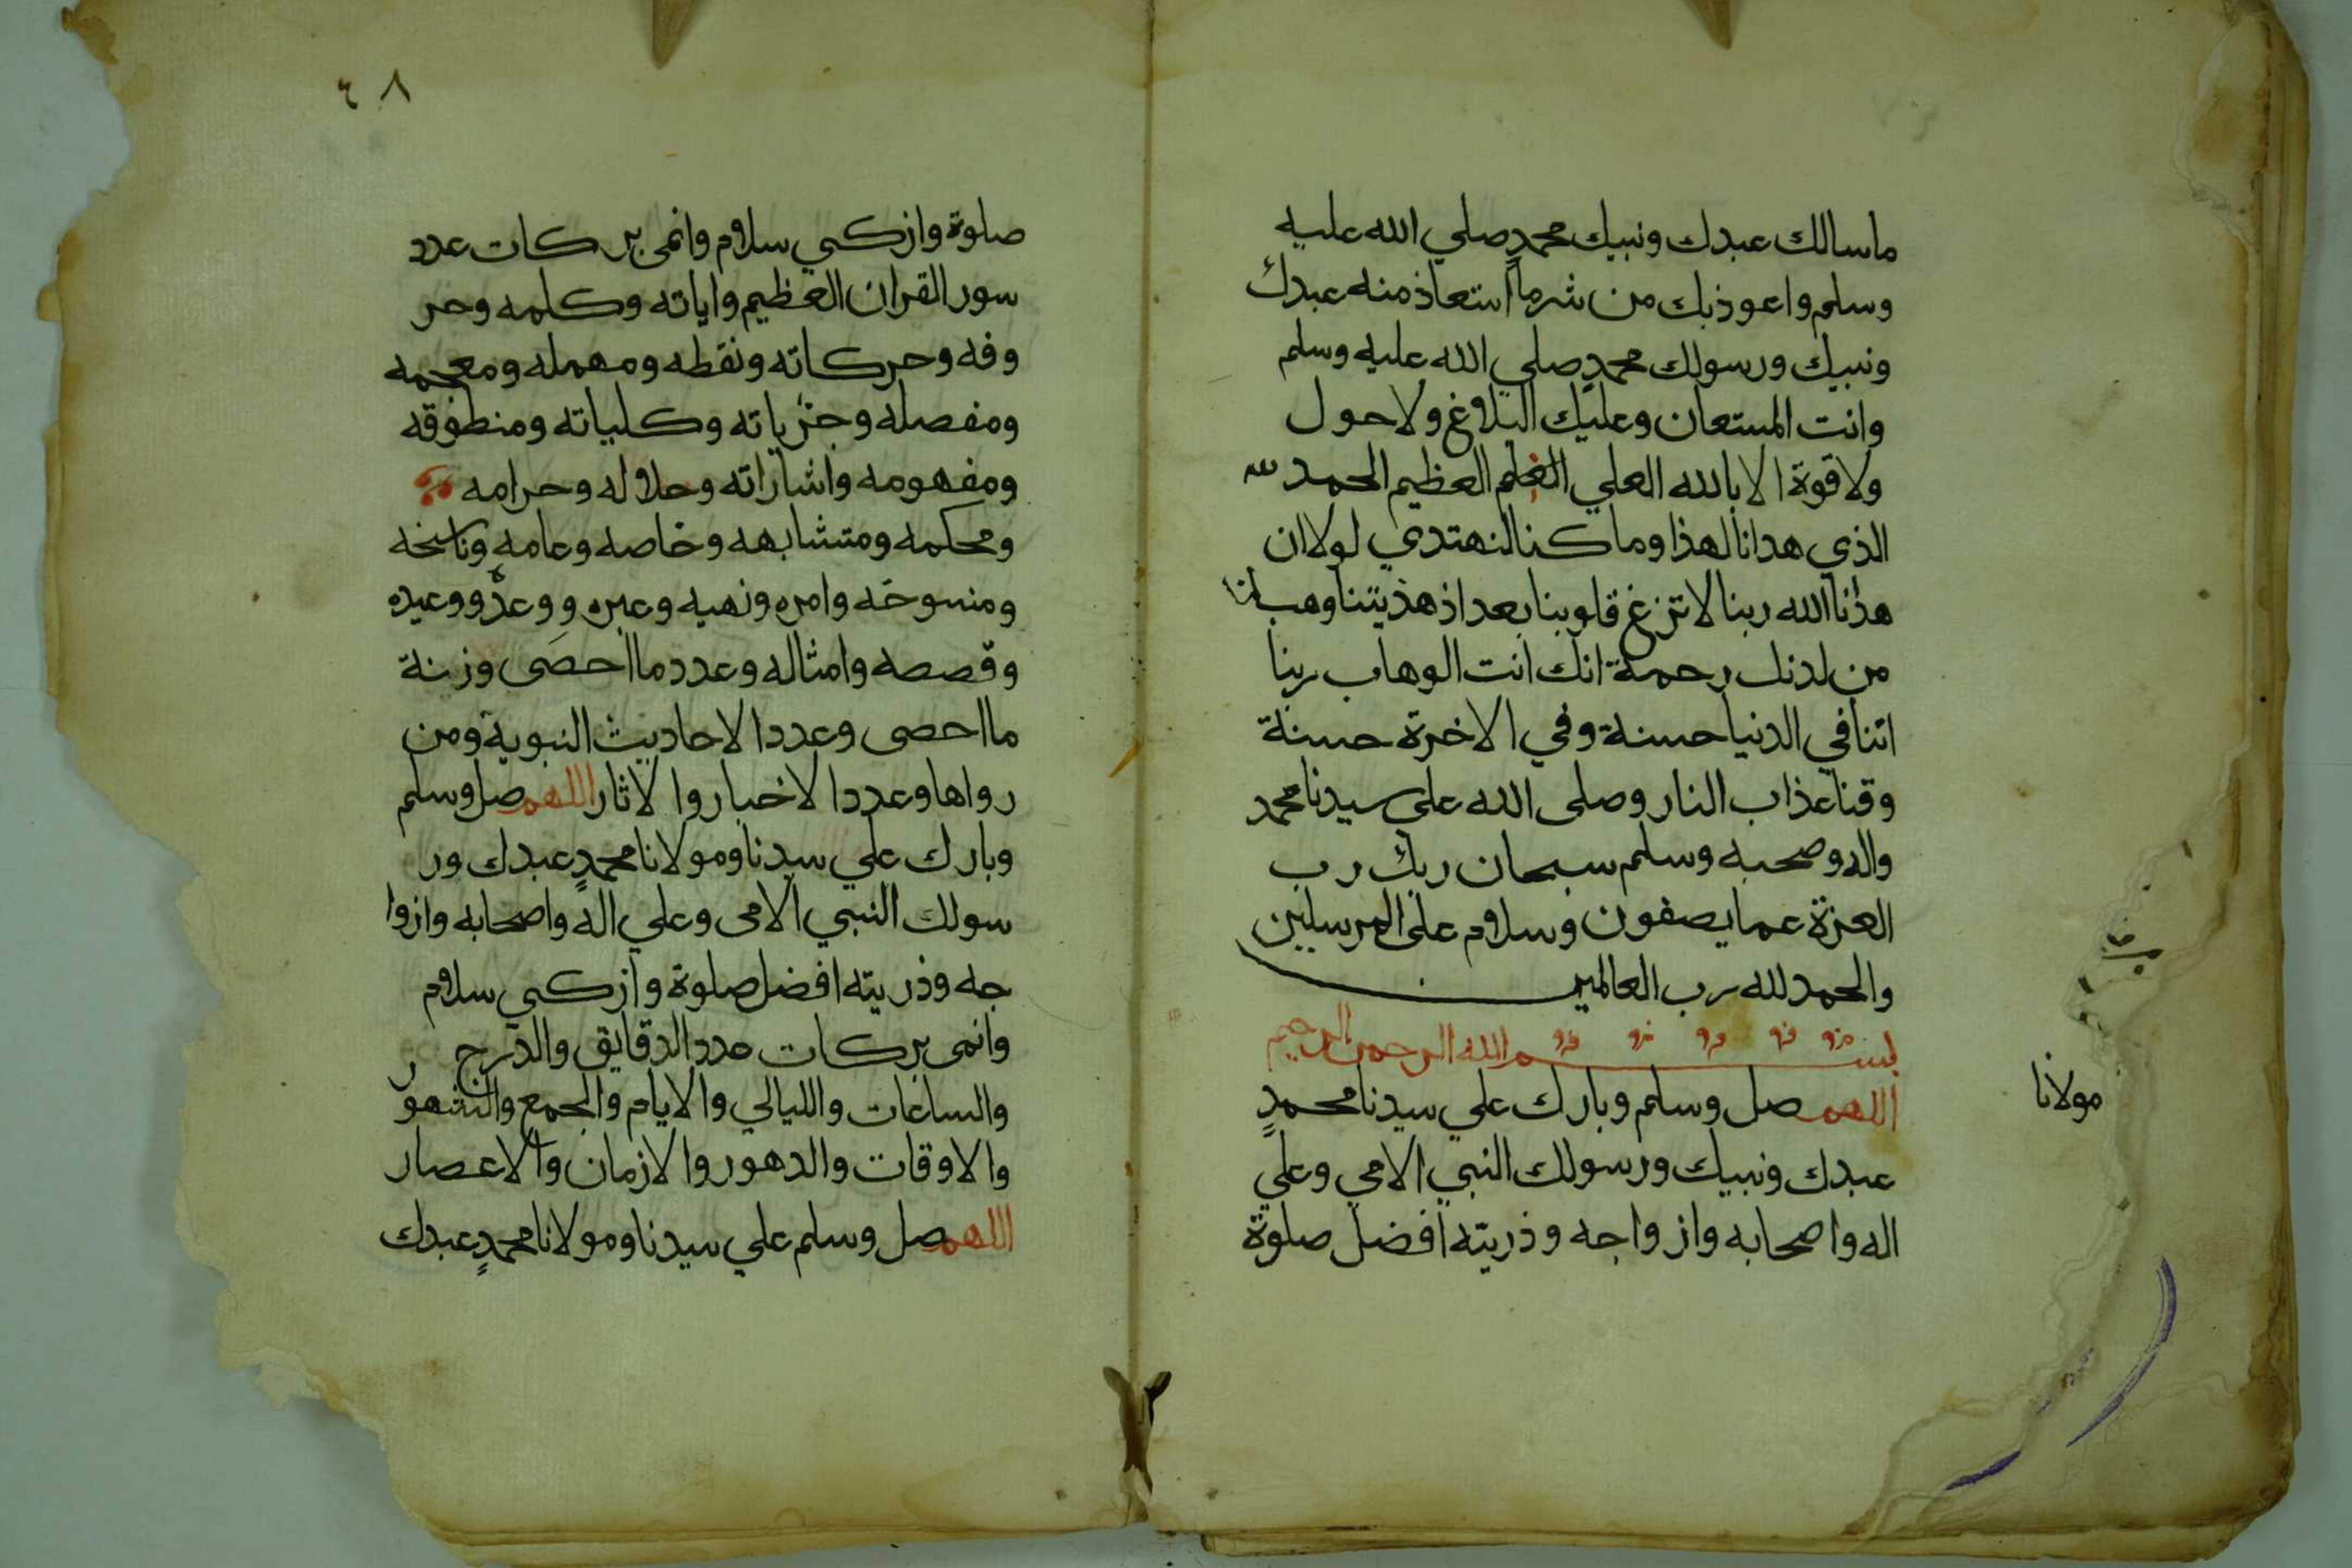 ماسالك عبدك ونبيك محمدٍ صلي الله عليه
وسلم واعوذ بك من شر ما استعاذ منه عبدك
ونبيك ورسولك محمدٍ صلي الله عليه وسلم
وانت المستعان وعليك البلاغ ولا حول
ولا قوة الا بالله العلي العظيم الحمد لله
الذي هدانا لهذا وما كنا لنهتدي لولا ان
هدانا الله ربنا لا تزغ قلوبنا بعد اذ هديتنا وهب لنا
من لدنك رحمة انك انت الوهاب ربنا
اتنا في الدنيا حسنة وفي الاخرة حسنة
وقنا عذاب النار وصلى الله على سيدنا محمد
واله وصحبه وسلم سبحان ربك رب
العزة عما يصفون وسلام على المرسلين
والحمد لله رب العالمين
بسم الله الرحمن الرحيم
اللهم صل وسلم وبارك علي سيدنا محمدٍ
مولانا
عبدك ونبيك ورسولك النبي الامي وعلي
اله واصحابه وازواجه وذريته افضل صلوة
٤٨
صلوة وازكي سلام وانمى بركات عدد
سور القران العظيم واياته وكلمه وحر
وفه وحركاته ونقطه ومهمله ومعجمه
ومفصله وجزياته وكلياته ومنطوقه
ومفهومه واشاراته وحلاله وحرامه
ومحكمه ومتشابهه وخاصه وعامه وناسخه
ومنسوخه وامره ونهيه وعبره ووعده ووعيده
وقصصه وامثاله وعدد ما احصى وزنة
ما احصى وعدد الاحاديث النبوية ومن
رواها وعدد الاخبار والاثار اللهم صل وسلم
وبارك علي سيدنا ومولانا محمدٍ عبدك ور
سولك النبي الامى وعلي اله واصحابه وازوا
جه وذريته افضل صلوة وازكي سلام
وانمى بركات عدد الدقايق والدرج
والساعات والليالي والايام والجمع والشهور
والاوقات والدهور والازمان والاعصار
اللهم صل وسلم علي سيدنا ومولانا محمدٍ عبدك